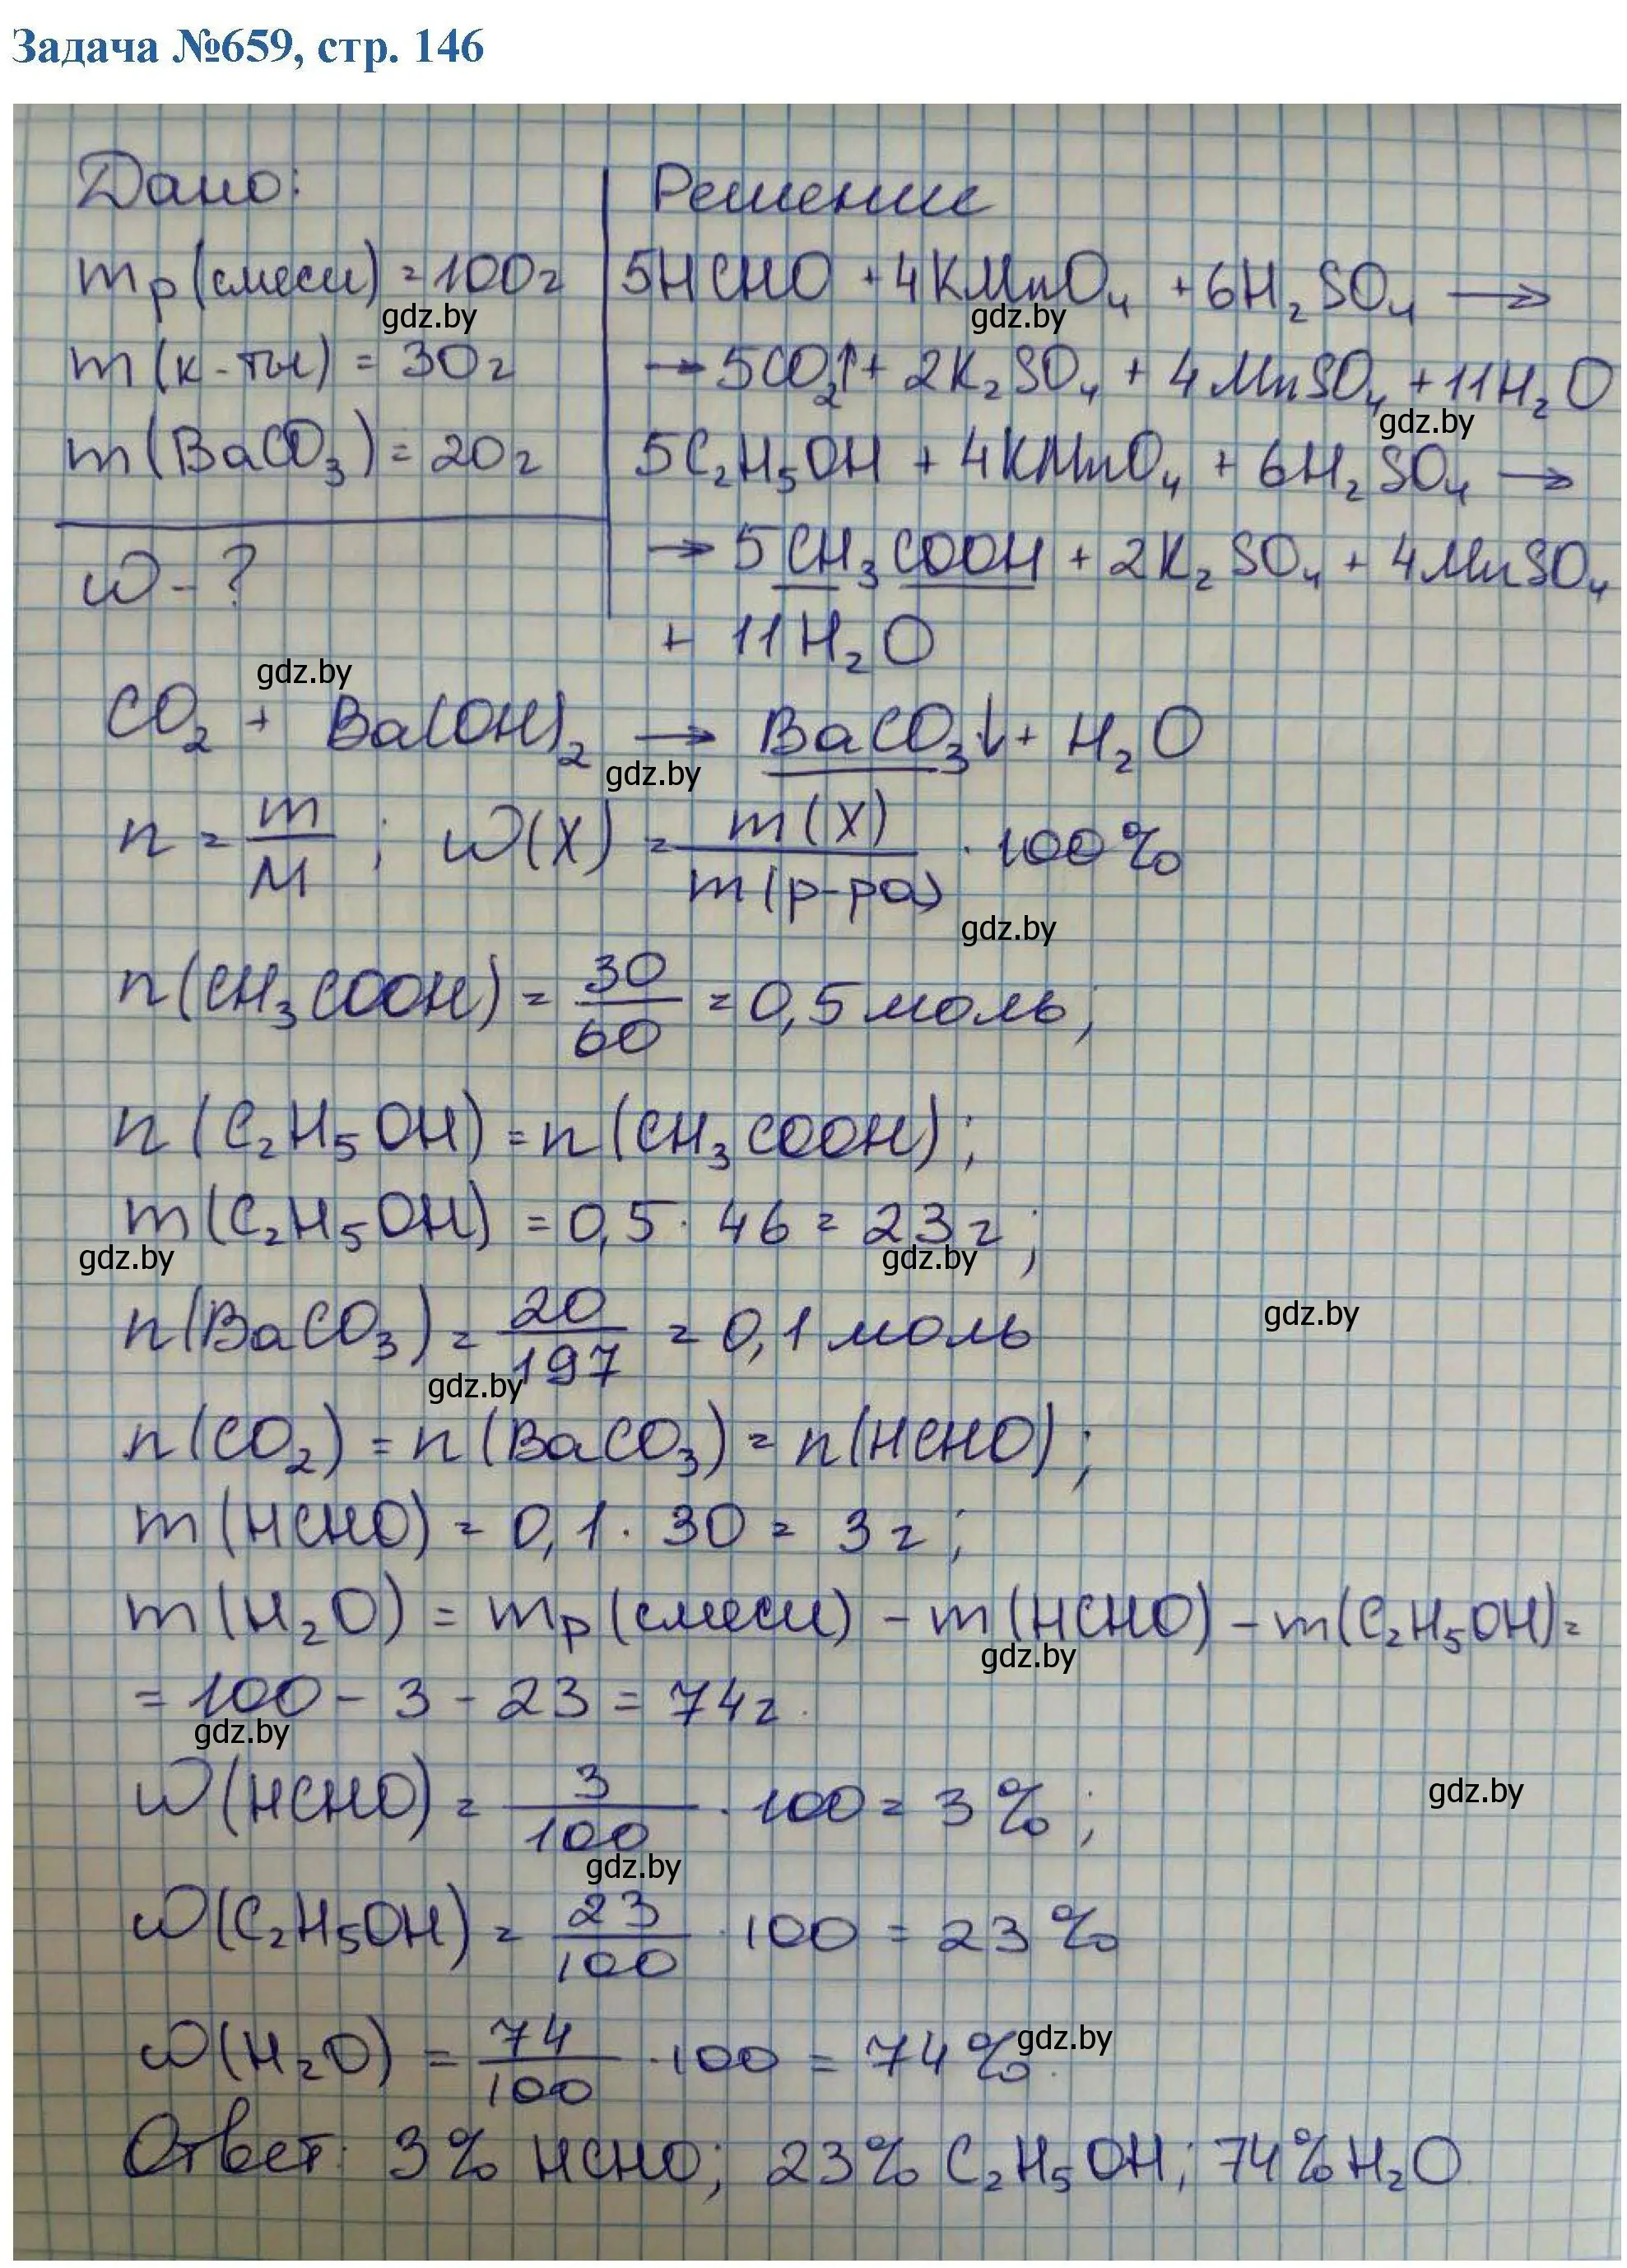 Задача №659, стр. 146
Дано:
mр(смеси) = 100г
gdz.by
m(к-ты) = 30г
m(BaCO₃) = 20г
ω - ?
Решение
5HCHO + 4KMnO₄ + 6H₂SO₄ →
gdz.by
→ 5CO₂↑ + 2K₂SO₄ + 4MnSO₄ + 11H₂O
gdz.by
5C₂H₅OH + 4KMnO₄ + 6H₂SO₄ →
→ 5CH₃COOH + 2K₂SO₄ + 4MnSO₄
+ 11H₂O
gdz.by
CO₂ + Ba(OH)₂ → BaCO₃↓ + H₂O
gdz.by
n = m/M ; ω(X) = m(X)/m(р-ра) · 100%
gdz.by
n(CH₃COOH) = 30/60 = 0,5 моль;
n(C₂H₅OH) = n(CH₃COOH);
m(C₂H₅OH) = 0,5 · 46 = 23г;
gdz.by gdz.by
n(BaCO₃) = 20/197 = 0,1 моль
gdz.by
gdz.by
n(CO₂) = n(BaCO₃) = n(HCHO);
m(HCHO) = 0,1 · 30 = 3г;
m(H₂O) = mр(смеси) - m(HCHO) - m(C₂H₅OH) =
gdz.by
= 100 - 3 - 23 = 74г.
gdz.by
ω(HCHO) = 3/100 · 100 = 3%;
gdz.by
gdz.by
ω(C₂H₅OH) = 23/100 · 100 = 23%
ω(H₂O) = 74/100 · 100 = 74%.
gdz.by
Ответ: 3% HCHO; 23% C₂H₅OH; 74% H₂O.